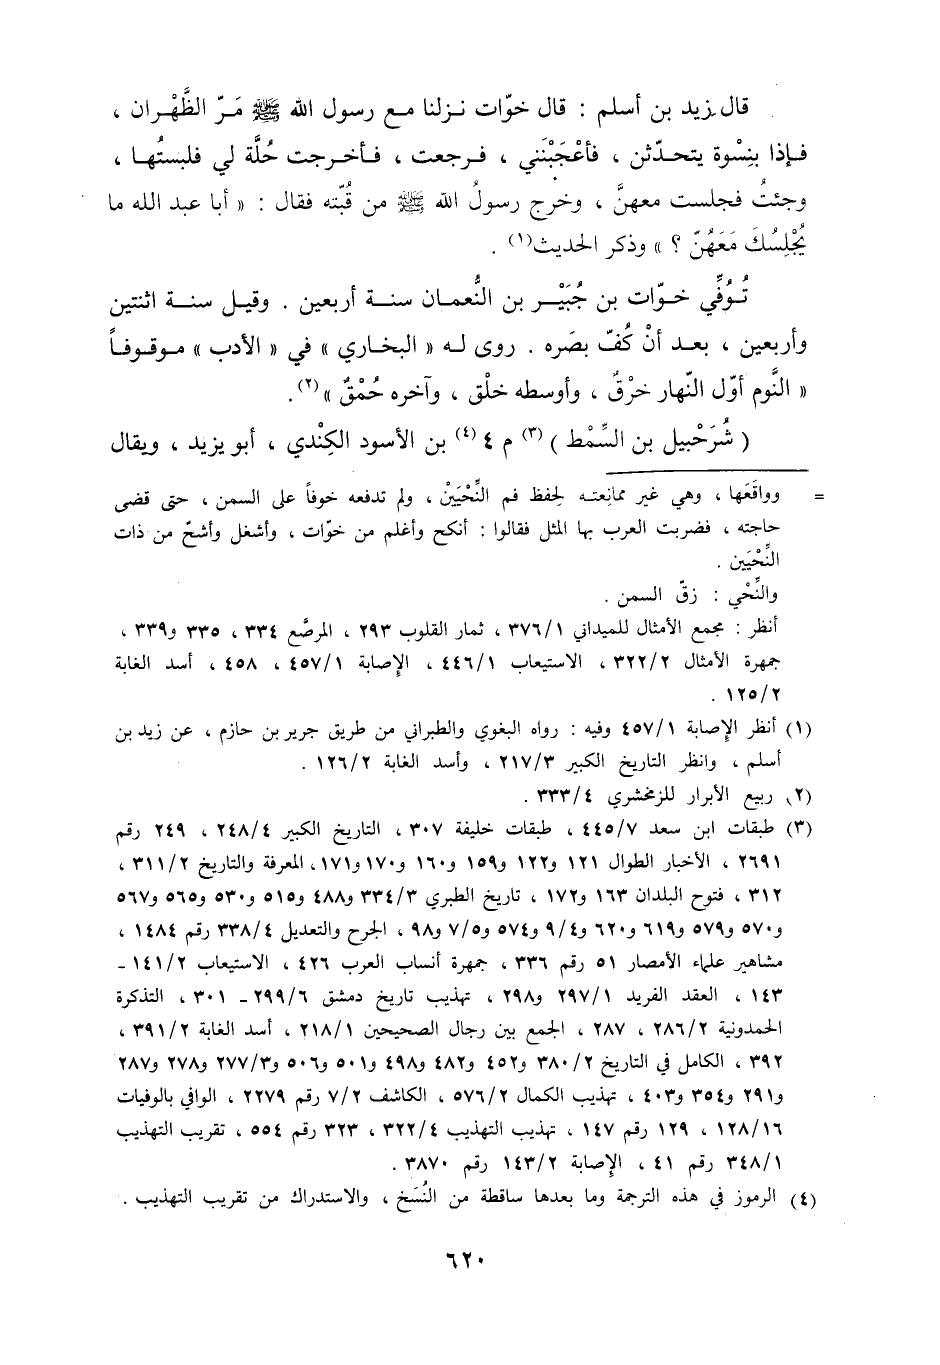 قال زيد بن أسلم : قال خوّات نزلنا مع رسول الله ﷺ مَرّ الظَّهْران ،
فإذا بنِسْوة يتحدّثن ، فأعْجَبْنَني ، فرجعت ، فأخرجت حُلَّة لي فلبستُها ،
وجئتُ فجلست معهنَّ ، وخرج رسولُ الله ﷺ من قُبّته فقال : « أبا عبد الله ما
يُجْلِسُكَ مَعَهُنّ ؟ » وذكر الحديث(١) .
تُوُفِّي خوّات بن جُبَيْر بن النُّعمان سنة أربعين . وقيل سنة اثنتين
وأربعين ، بعد أنْ كُفّ بصَره . روى له « البخاري » في « الأدب » موقوفاً
« النَّوم أوّل النّهار خرْقٌ ، وأوسطه خلْق ، وآخره حُمْقٌ »(٢).
( شُرَحْبيل بن السِّمْط )(٣) م ٤(٤) بن الأسود الكِنْدي ، أبو يزيد ، ويقال
= وواقَعَها ، وهي غير ممانِعته لحِفظ فم النِّحْيَيْن ، ولم تدفعه خوفاً على السمن ، حتى قضى
حاجته ، فضربت العرب بها المثل فقالوا : أنكح وأغلم من خوّات ، وأشغل وأشحّ من ذات
النِّحْيَين .
والنِّحْي : زقّ السمن .
أنظر : مجمع الأمثال للميداني ٣٧٦/١ ، ثمار القلوب ٢٩٣ ، المرصَّع ٣٣٤ ، ٣٣٥ و٣٣٩ ،
جمهرة الأمثال ٣٢٢/٢ ، الاستيعاب ٤٤٦/١ ، الإصابة ٤٥٧/١ ، ٤٥٨ ، أسد الغابة
١٢٥/٢ .
(١) أنظر الإصابة ٤٥٧/١ وفيه : رواه البغوي والطبراني من طريق جرير بن حازم ، عن زيد بن
أسلم ، وانظر التاريخ الكبير ٢١٧/٣ ، وأسد الغابة ١٢٦/٢ .
(٢) ربيع الأبرار للزمخشري ٣٣٣/٤ .
(٣) طبقات ابن سعد ٤٤٥/٧ ، طبقات خليفة ٣٠٧ ، التاريخ الكبير ٢٤٨/٤ ، ٢٤٩ رقم
٢٦٩١ ، الأخبار الطوال ١٢١ و١٢٢ و١٥٩ و١٦٠ و١٧٠ و١٧١، المعرفة والتاريخ ٣١١/٢ ،
٣١٢ ، فتوح البلدان ١٦٣ و١٧٢ ، تاريخ الطبري ٣٣٤/٣ و٤٨٨ و٥١٥ و٥٣٠ و٥٦٥ و٥٦٧
و٥٧٠ و٥٧٩ و٦١٩ و٦٢٠ و٩/٤ و٥٧٤ و٧/٥ و٩٨ ، الجرح والتعديل ٣٣٨/٤ رقم ١٤٨٤ ،
مشاهير علماء الأمصار ٥١ رقم ٣٣٦ ، جمهرة أنساب العرب ٤٢٦ ، الاستيعاب ١٤١/٢ -
١٤٣ ، العقد الفريد ٢٩٧/١ و٢٩٨ ، تهذيب تاريخ دمشق ٢٩٩/٦ - ٣٠١ ، التذكرة
الحمدونية ٢٨٦/٢ ، ٢٨٧ ، الجمع بين رجال الصحيحين ٢١٨/١ ، أسد الغابة ٣٩١/٢ ،
٣٩٢ ، الكامل في التاريخ ٣٨٠/٢ و٤٥٢ و٤٨٢ و٤٩٨ و٥٠١ و٥٠٦ و٢٧٧/٣ و٢٧٨ و٢٨٧
و٢٩١ و٣٥٤ و٤٠٣ ، تهذيب الكمال ٥٧٦/٢ ، الكاشف ٧/٢ رقم ٢٢٧٩ ، الوافي بالوفيات
١٢٨/١٦ ، ١٢٩ رقم ١٤٧ ، تهذيب التهذيب ٣٢٢/٤ ، ٣٢٣ رقم ٥٥٤ ، تقريب التهذيب
٣٤٨/١ رقم ٤١ ، الإصابة ١٤٣/٢ رقم ٣٨٧٠ .
(٤) الرموز في هذه الترجمة وما بعدها ساقطة من النُّسَخ ، والاستدراك من تقريب التهذيب .
٦٢٠